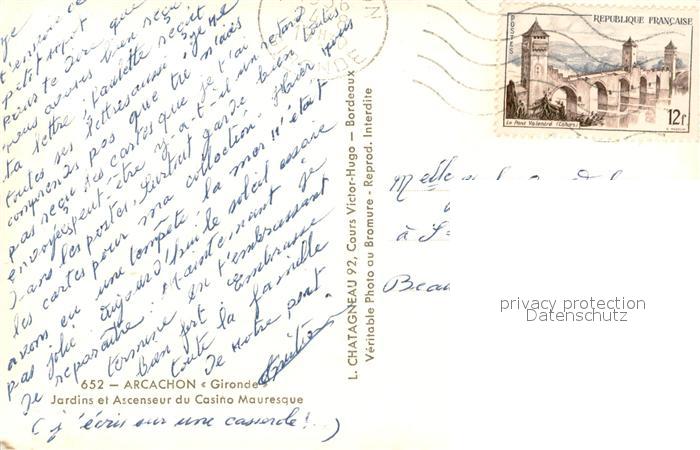 je
t'envoie ce
petit mot
pour te dire que
nous avons bien reçu
ta lettre. Paulette reçoit
toutes ses lettres aussi. Je ne
comprends pas que tu n'aies
pas reçu les cartes que je t'ai
envoyées peut-être y a-t-il un retard
dans les postes. Surtout garde bien toutes
les cartes pour ma collection. Hier nous
avons eu une tempête, la mer !!! était
pas jolie. Aujourd'hui le soleil essaie
de reparaître. Maintenant je
termine en t'embrassant
bien fort. Embrasse
toute la famille
de notre part.
652 — ARCACHON « Gironde »
Jardins et Ascenseur du Casino Mauresque
( j'écris sur une casserole !...)
L. CHATAGNEAU 92, Cours Victor-Hugo — Bordeaux
Véritable Photo au Bromure - Reprod. Interdite
REPUBLIQUE FRANÇAISE
POSTES
Le Pont Valentré (Cahors)
12f
Melle
à
Beau
privacy protection
Datenschutz